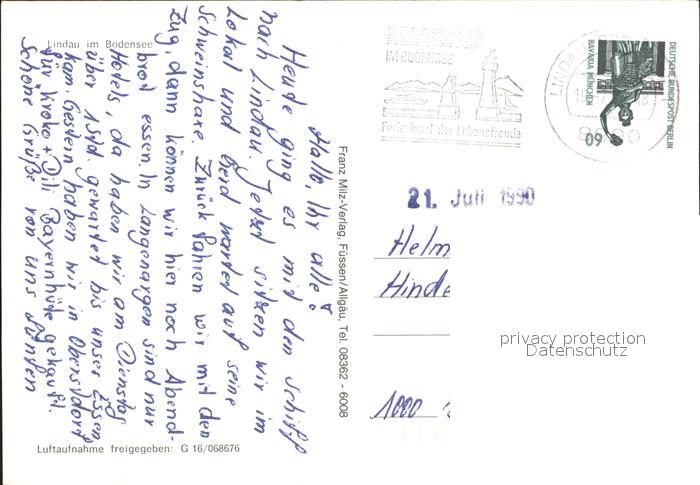 Lindau im Bodensee
Hallo, Ihr alle!
Heute ging es mit den Schiff
nach Lindau. Jetzt sitzen wir im
Lokal und Gerd wartet auf seine
Schweinshaxe. Zurück fahren wir mit den
Zug, dann können wir hier noch Abend-
brot essen. In Langenargen sind nur
Hotels, da haben wir am Dienstag
über 1 Std. gewartet bis unser Essen
kam. Gestern haben wir in Oberstdorf
für + Bayernhüte gekauft.
Schöne Grüße von uns
Luftaufnahme freigegeben: G 16/068676
Franz Milz-Verlag, Füssen/Allgäu, Tel. 08362 - 6008
IM BODENSEE
Ferieninsel der Lebensfreude
LINDAU
DEUTSCHE BUNDESPOST BERLIN
BAVARIA MÜNCHEN
60
21. Juli 1990
Helm
Hinde
1000
privacy protection
Datenschutz